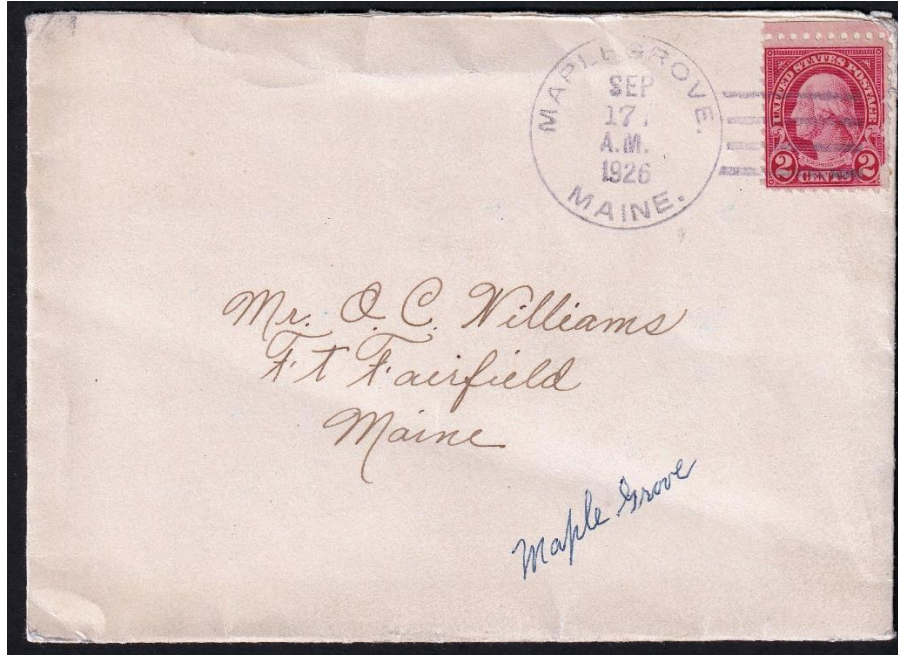 MAPLEGROVE.
SEP
17.
A.M.
1926
MAINE.
UNITED STATES POSTAGE
2 CENTS 2
Mr. O. C. Williams
Ft Fairfield
Maine
Maple Grove